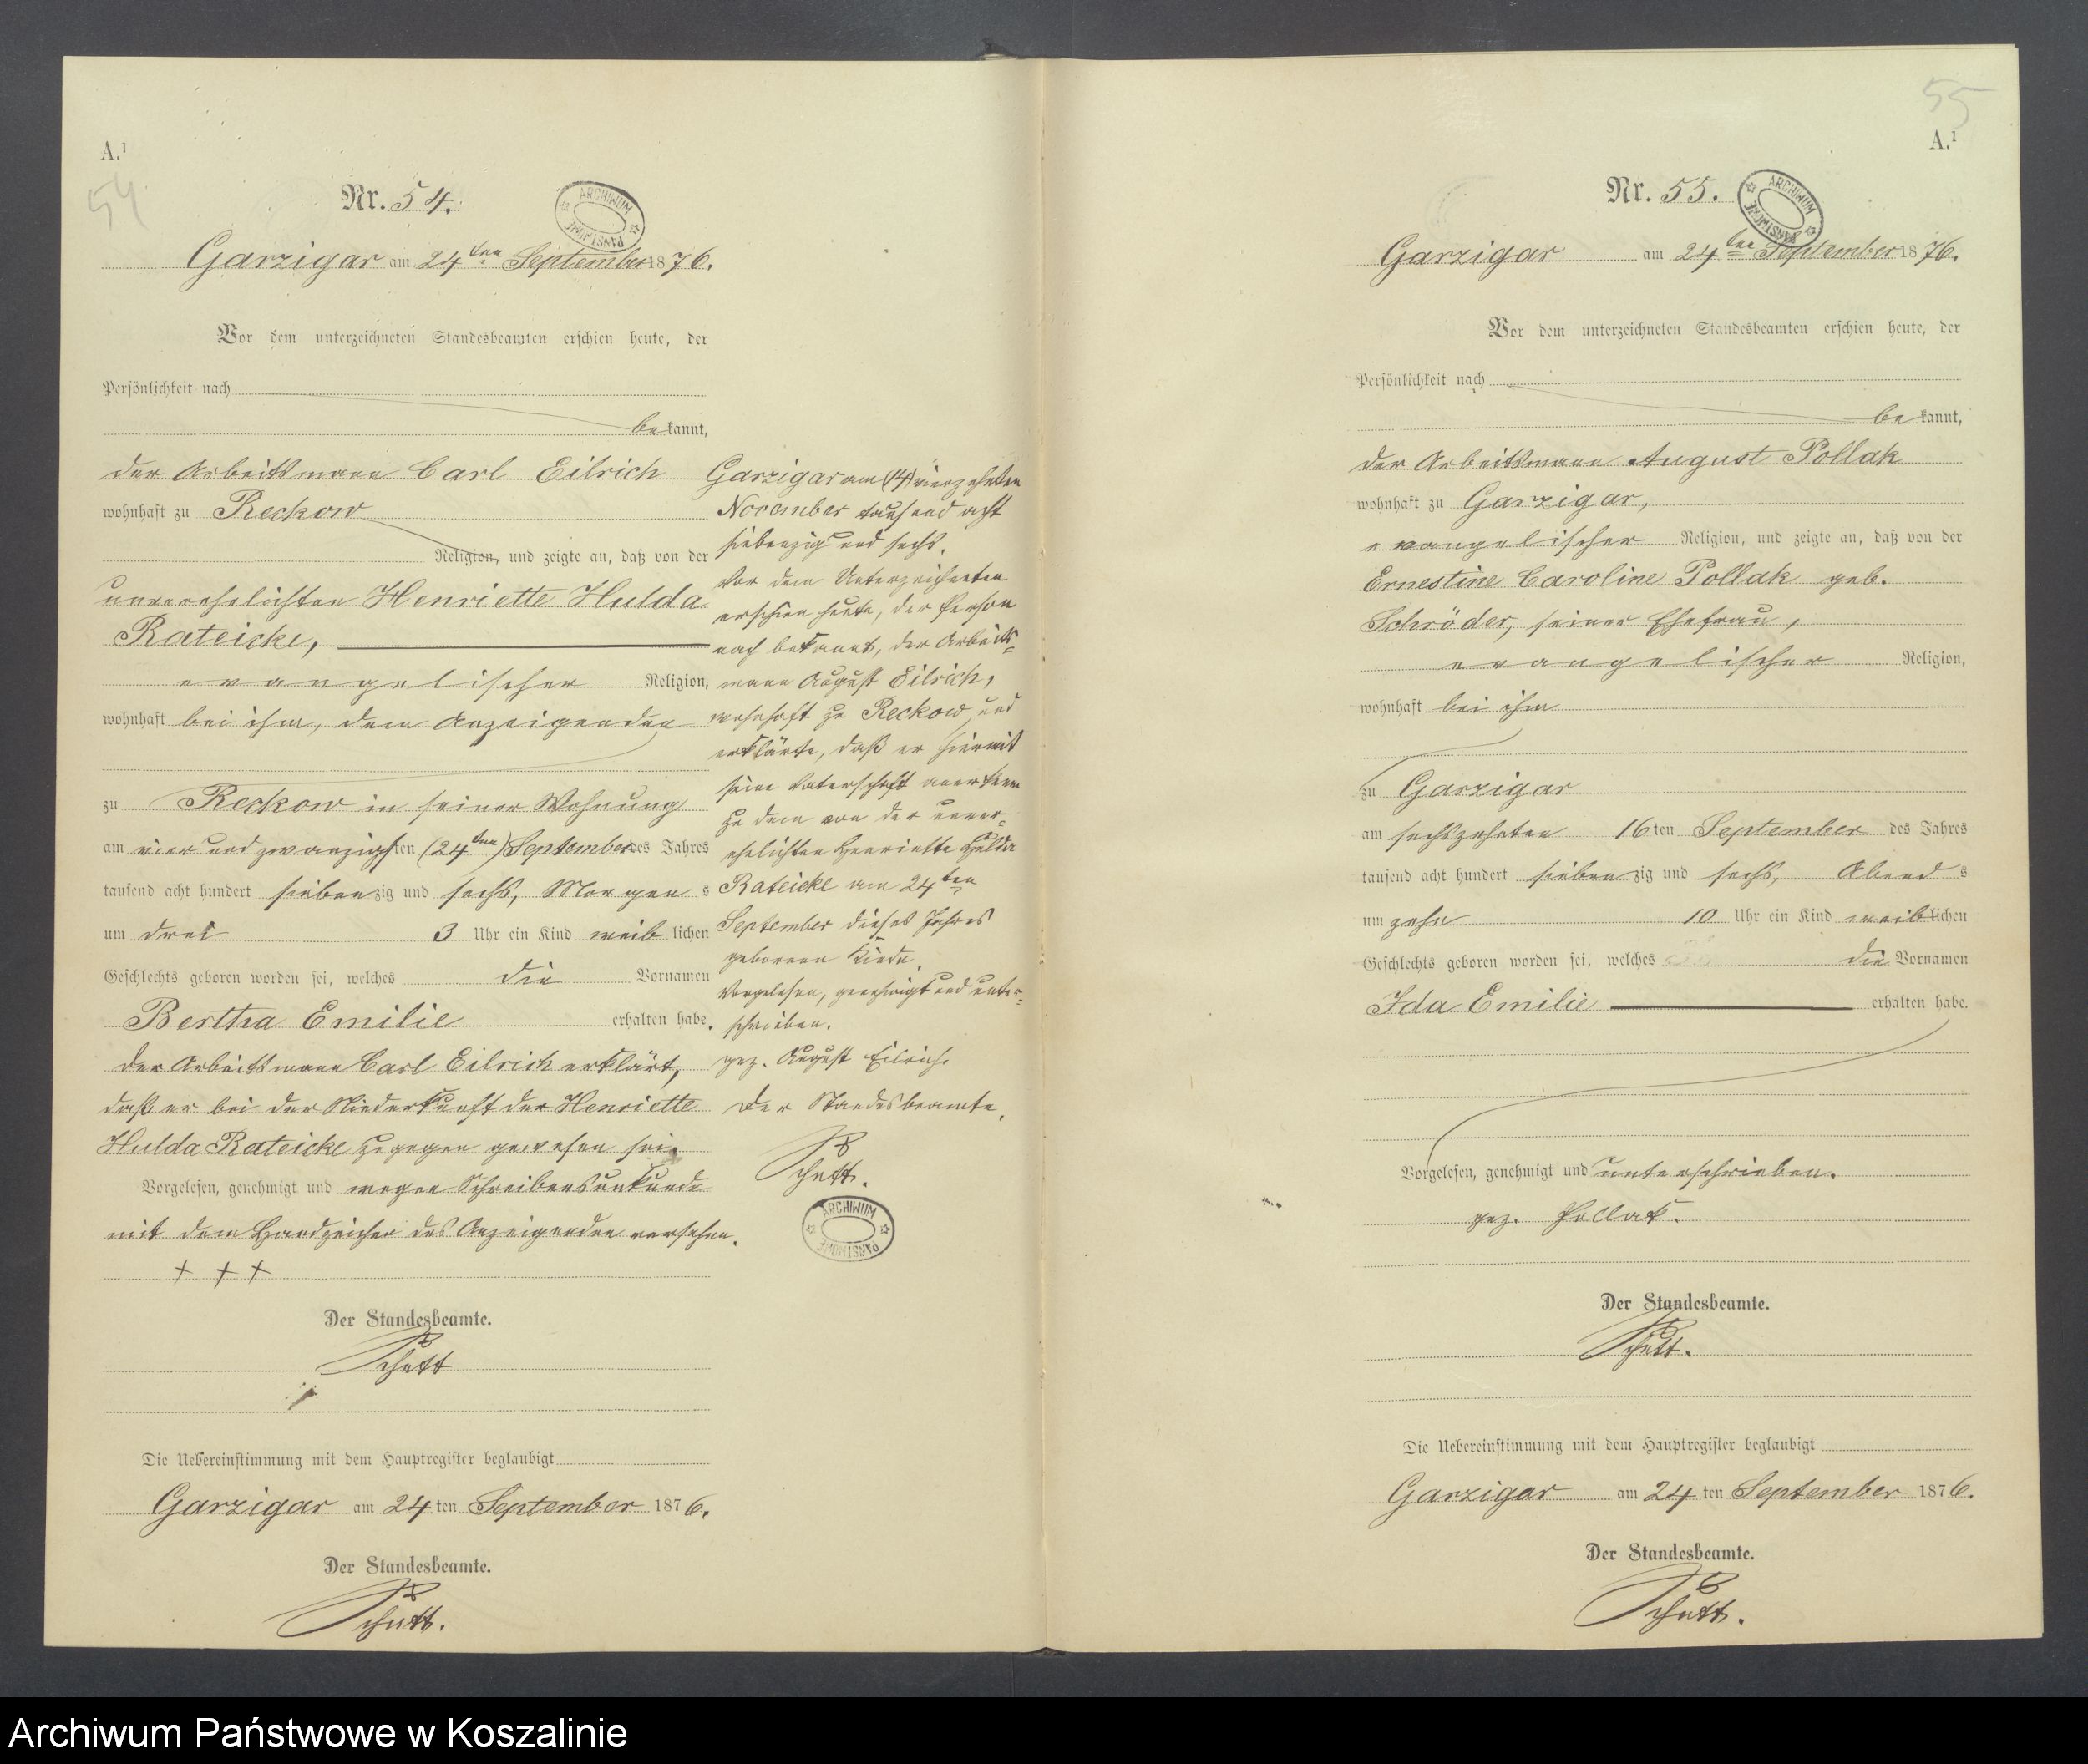 54
A.¹
Nr. 54.
ARCHIWUM PAŃSTWOWE
Garzigar am 24ten September 1876.
Vor dem unterzeichneten Standesbeamten erschien heute, der
Persönlichkeit nach
bekannt,
der Arbeitsmann Carl Eilrich
wohnhaft zu Reckow
Religion, und zeigte an, daß von der
unverehelichten Henriette Hulda
Rateicke,
evangelischer Religion,
wohnhaft bei ihm, dem Anzeigenden
zu Reckow in seiner Wohnung
am vier und zwanzigsten (24ten) September des Jahres
tausend acht hundert siebenzig und sechs, Morgens
um drei 3 Uhr ein Kind weiblichen
Geschlechts geboren worden sei, welches die Vornamen
Bertha Emilie erhalten habe.
Der Arbeitsmann Carl Eilrich erklärt,
daß er bei der Niederkunft der Henriette
Hulda Rateicke zugegen gewesen sei.
Vorgelesen, genehmigt und wegen Schreibensunkunde
mit dem Handzeichen des Anzeigenden versehen.
+ + +
Der Standesbeamte.
Schutt
Die Uebereinstimmung mit dem Hauptregister beglaubigt
Garzigar am 24ten September 1876.
Der Standesbeamte.
Schutt.
Garzigar am (14) vierzehnten
November tausend acht
siebenzig und sechs.
Vor dem Unterzeichneten
erschien heute, der Person
nach bekannt, der Arbeits-
mann August Eilrich,
wohnhaft zu Reckow, und
erklärte, daß er hiermit
seine Vaterschaft anerkenne
zu dem von der unver-
ehelichten Henriette Hulda
Rateicke am 24ten
September dieses Jahres
geborenen Kinde.
Vorgelesen, genehmigt und unter-
schrieben.
gez. August Eilrich.
Der Standesbeamte.
Schutt.
ARCHIWUM PAŃSTWOWE
55
A.¹
Nr. 55.
ARCHIWUM PAŃSTWOWE
Garzigar am 24ten September 1876.
Vor dem unterzeichneten Standesbeamten erschien heute, der
Persönlichkeit nach
bekannt,
der Arbeitsmann August Pollak
wohnhaft zu Garzigar,
evangelischer Religion, und zeigte an, daß von der
Ernestine Caroline Pollak geb.
Schröder, seiner Ehefrau,
evangelischer Religion,
wohnhaft bei ihm
zu Garzigar
am sechszehnten 16ten September des Jahres
tausend acht hundert siebenzig und sechs, Abends
um zehn 10 Uhr ein Kind weiblichen
Geschlechts geboren worden sei, welches die Vornamen
Ida Emilie erhalten habe.
Vorgelesen, genehmigt und unterschrieben.
gez. Pollak.
Der Standesbeamte.
Schutt.
Die Uebereinstimmung mit dem Hauptregister beglaubigt
Garzigar am 24ten September 1876.
Der Standesbeamte.
Schutt.
Archiwum Państwowe w Koszalinie